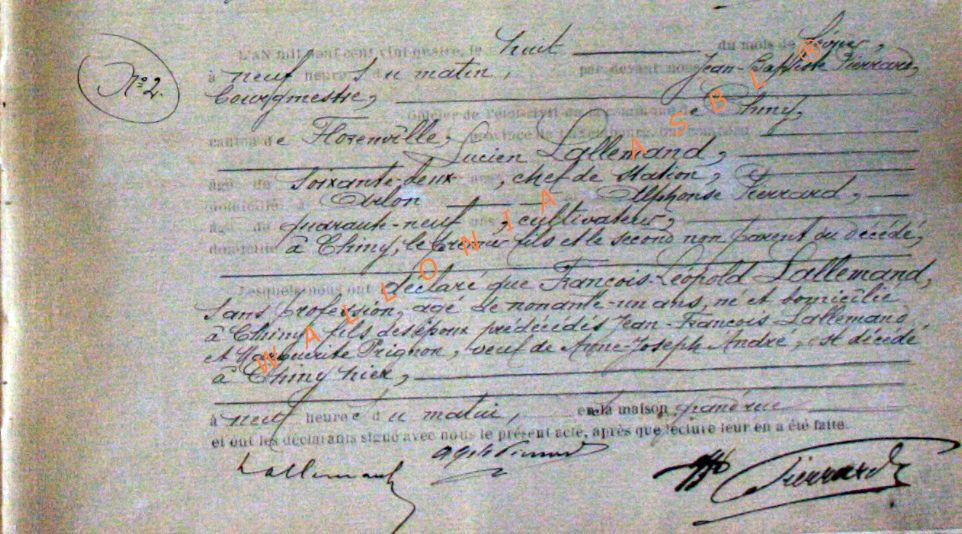 N° 2.
L'an mil neuf cent vingt-quatre, le huit du mois de Février,
à neuf heures du matin, par devant nous Jean-Baptiste Pierrard,
Bourgmestre,
Officier de l'état-civil de la commune de Chiny,
canton de Florenville, province de Luxembourg, ont comparu
Lucien Lallemand,
âgé de soixante-deux ans, chef de station,
domicilié à Arlon Alphonse Pierrard,
âgé de quarante-neuf ans, cultivateur,
domicilié à Chiny, le premier fils et le second non parent au décédé,
Lesquels nous ont déclaré que François-Léopold Lallemand,
sans profession, agé de nonante-un ans, né et domicilié
à Chiny fils des époux prédécédés Jean-François Lallemand
et Marguerite Prignon, veuf de Anne-Joseph André, est décédé
à Chiny hier,
à neuf heures du matin, en la maison grand'rue
et ont les déclarants signé avec nous le présent acte, après que lecture leur en a été faite.
Lallemand Pierrard
WALLONIA ASBL ©